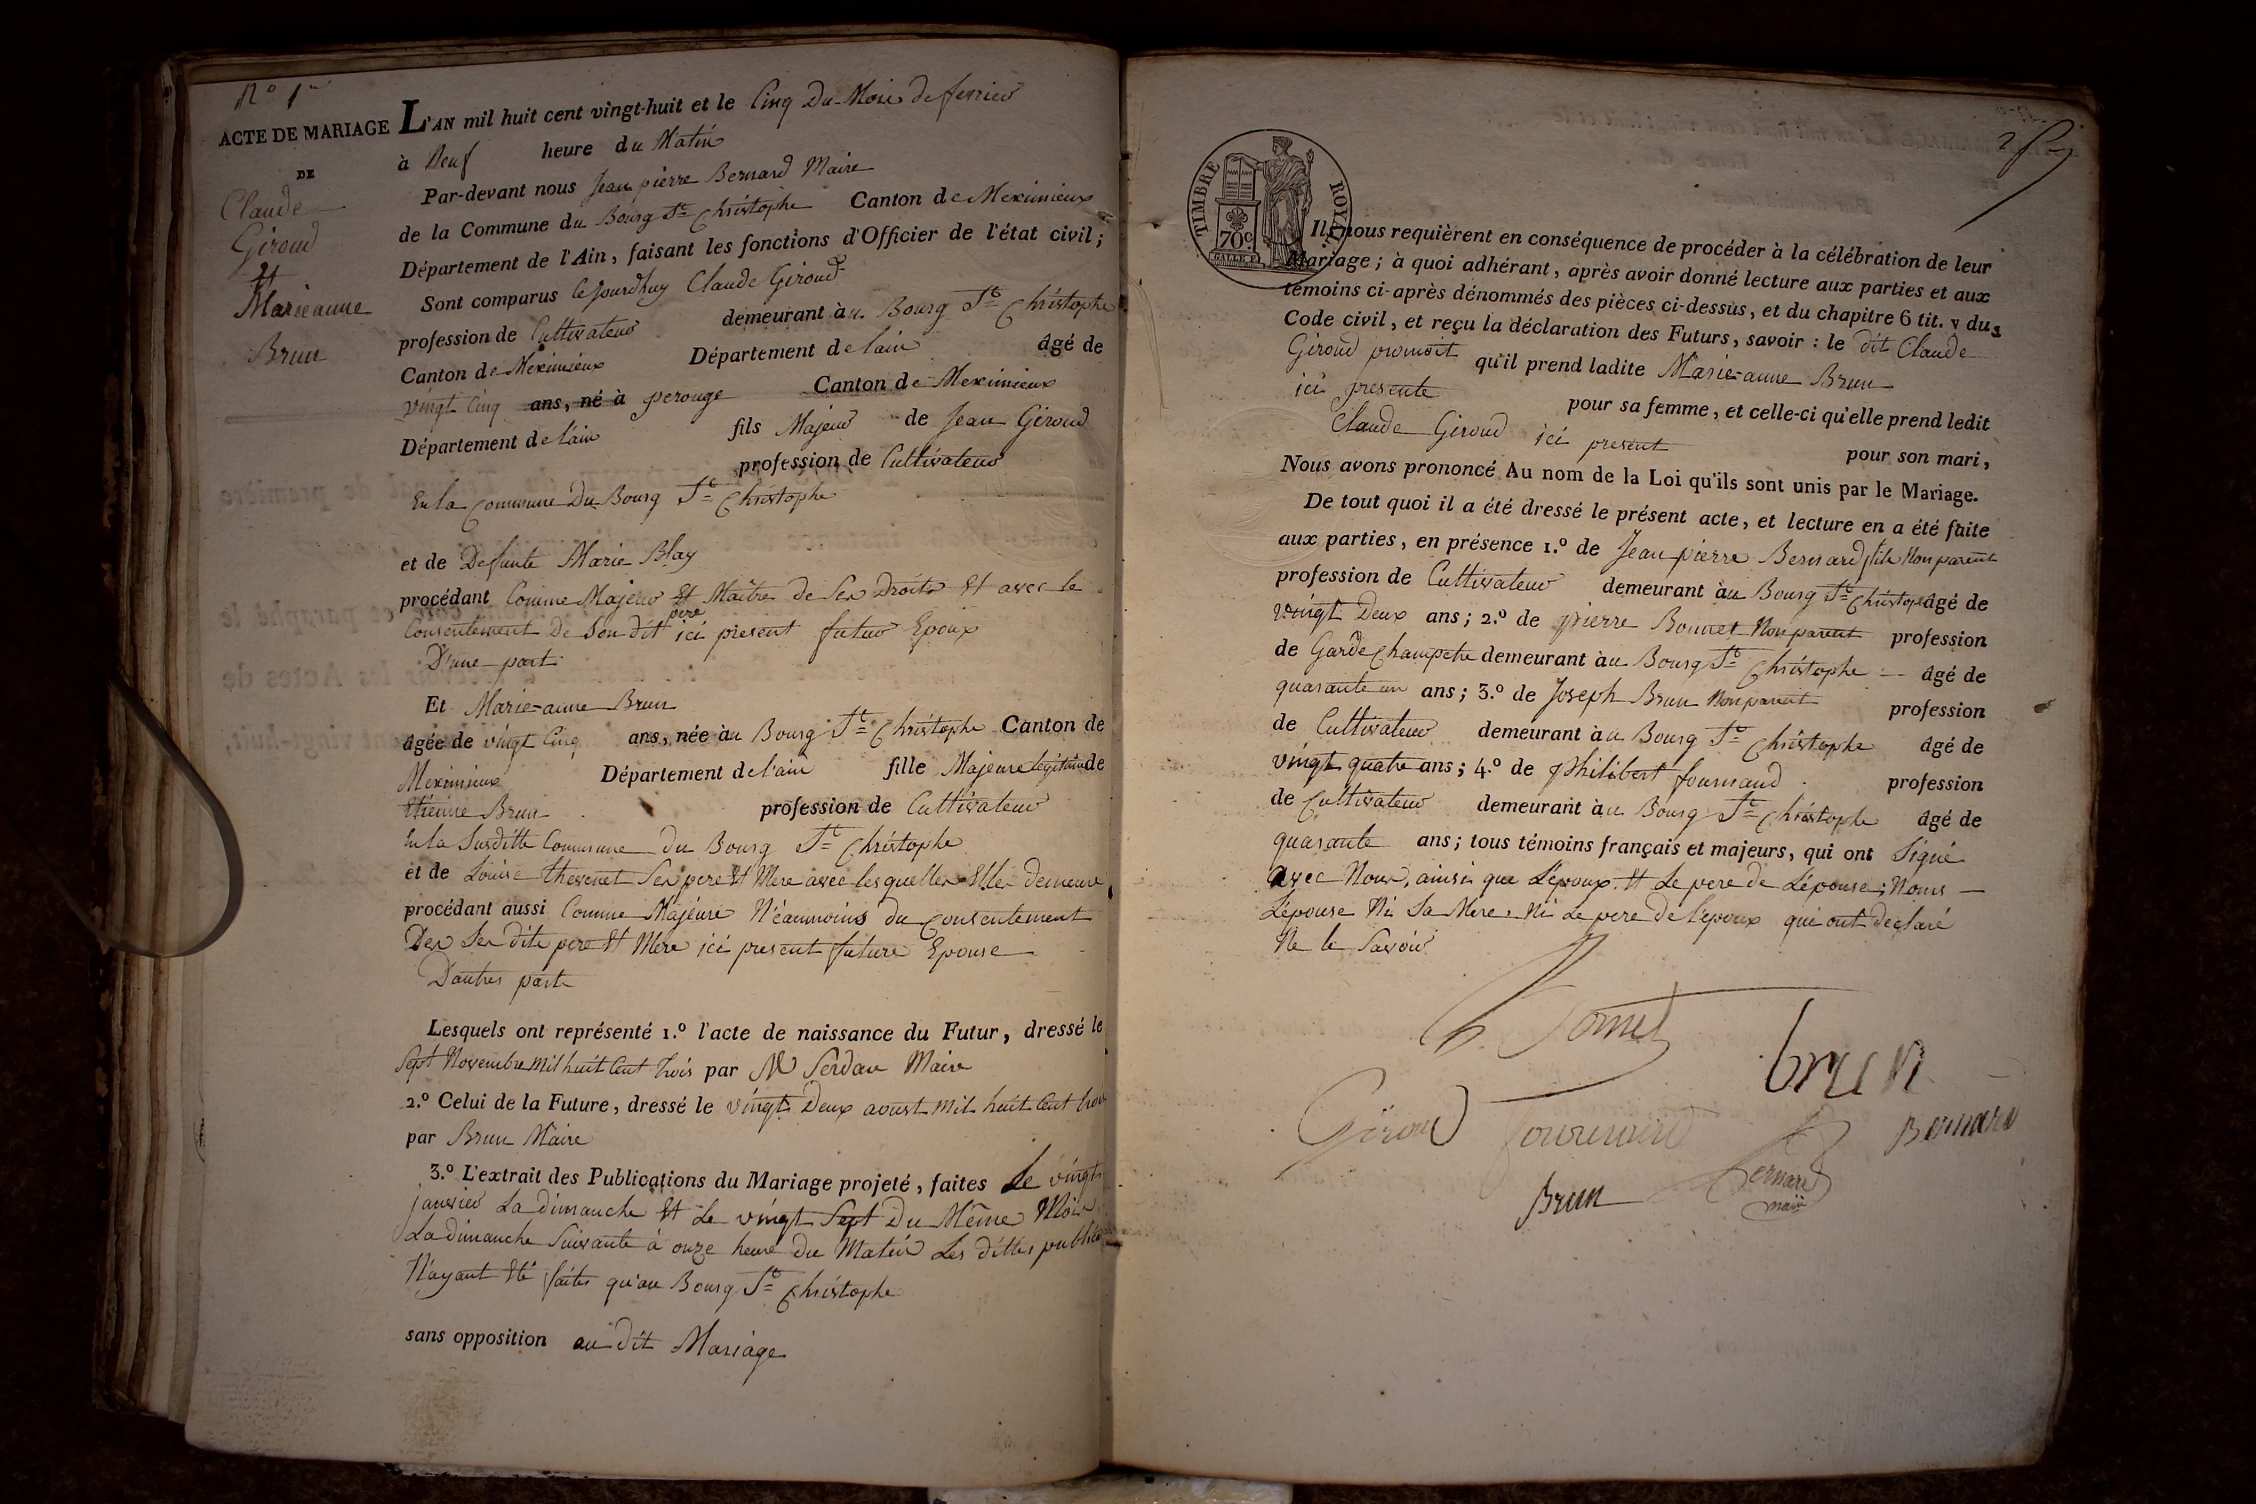 N° 1er
ACTE DE MARIAGE
DE
Claude
Giroud
Et
Marie anne
Brun
L'AN mil huit cent vingt-huit et le Cinq Du Mois de fevrier
à Neuf heure du Matin
Par-devant nous Jean pierre Bernard Maire
de la Commune du Bourg St Christophe Canton de Meximieux
Département de l'Ain, faisant les fonctions d'Officier de l'état civil;
Sont comparus Cejourdhuy Claude Giroud
profession de Cultivateur demeurant au Bourg St Christophe
Canton de Meximieux Département de l'ain âgé de
vingt Cinq ans, né à perouge Canton de Meximieux
Département de l'ain fils Majeur de Jean Giroud
profession de Cultivateur
En la Commune Du Bourg St Christophe
et de Defunte Marie Blay
procédant Comme Majeur Et Maitre de Ses Droits Et avec le
Consentement De Son dit père ici present futur Epoux
D'une part
Et Marie-anne Brun
âgée de vingt Cinq ans, née au Bourg St Christophe Canton de
Meximieux Département de l'ain fille Majeure légitime de
Etienne Brun profession de Cultivateur
En la Susditte Commune du Bourg St Christophe
et de Louise thevenet Ses pere Et Mere avec lesquelles Elle demeure
procédant aussi Comme Majeure Néanmoins du Consentement
Des Ses dits pere Et Mere ici present future Epouse
D'autres part
Lesquels ont représenté 1.° l'acte de naissance du Futur, dressé le
Sept Novembre mil huit Cent trois par Mr Serdan Maire
2.° Celui de la Future, dressé le vingt Deux avoust mil huit Cent trois
par Brun Maire
3.° L'extrait des Publications du Mariage projeté, faites Le vingt
janvier La dimanche Et Le vingt Sept Du Même Mois
La dimanche Suivante à onze heure Du Matin Les dittes public
N'ayant Eté faites qu'au Bourg St Christophe
sans opposition au dit Mariage
TIMBRE ROYAL.
70c.
Ils nous requièrent en conséquence de procéder à la célébration de leur
Mariage; à quoi adhérant, après avoir donné lecture aux parties et aux
témoins ci-après dénommés des pièces ci-dessus, et du chapitre 6 tit. v du
Code civil, et reçu la déclaration des Futurs, savoir: le dit Claude
Giroud promoit qu'il prend ladite Marie-anne Brun
ici presente pour sa femme, et celle-ci qu'elle prend ledit
Claude Giroud ici present pour son mari,
Nous avons prononcé Au nom de la Loi qu'ils sont unis par le Mariage.
De tout quoi il a été dressé le présent acte, et lecture en a été faite
aux parties, en présence 1.° de Jean pierre Bernard fils Non parent
profession de Cultivateur demeurant au Bourg St Christophe âgé de
vingt Deux ans; 2.° de pierre Bonnet Non parent profession
de Garde Champetre demeurant au Bourg St Christophe âgé de
quarante un ans; 3.° de Joseph Brun Non parent profession
de Cultivateur demeurant au Bourg St Christophe âgé de
vingt quatre ans; 4.° de Philibert fournand profession
de Cultivateur demeurant au Bourg St Christophe âgé de
quarante ans; tous témoins français et majeurs, qui ont Signé
avec Nous, ainsi que L'époux Et Le pere de L'épouse; Noms
L'épouse Ni Sa Mere, Ni Le pere De l'epoux qui ont declaré
Ne le Savoir
brun
Giroud
Bernard
Brun
Bernard
maire